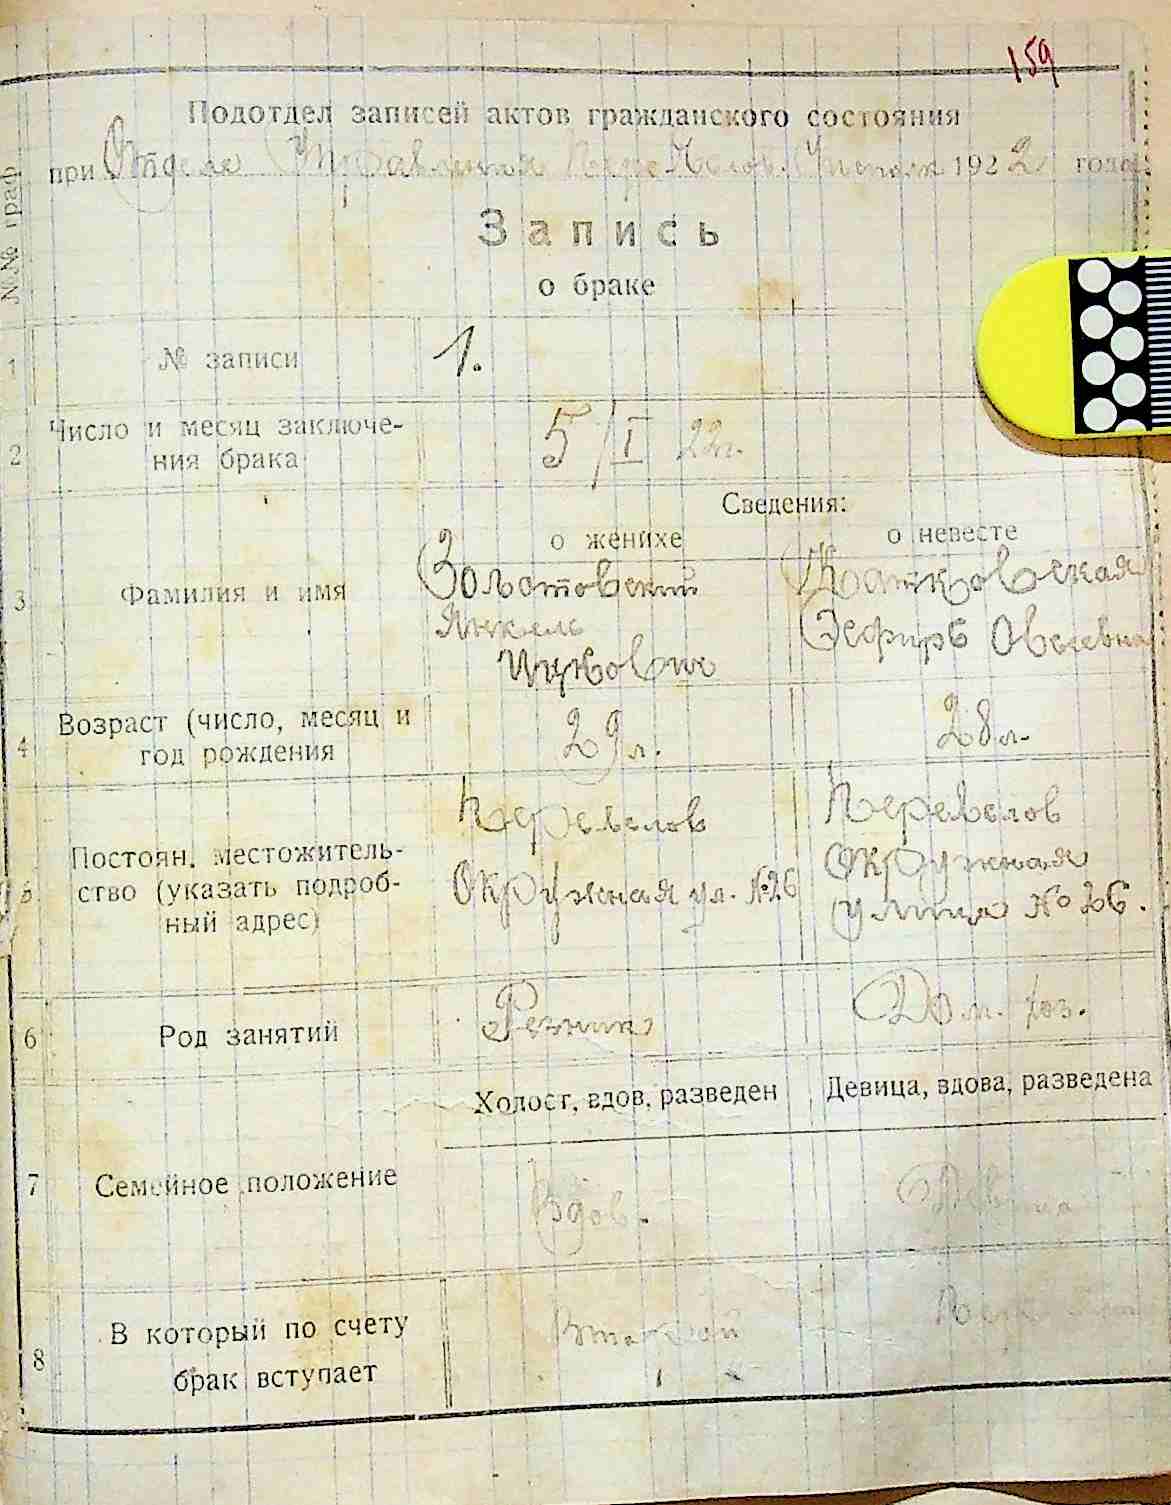 159
Подотдел записей актов гражданского состояния
при Отделе Управления 1922 года
№№ граф
Запись
о браке
1 № записи 1.
2 Число и месяц заключе-
ния брака 5/I 22г.
Сведения:
о женихе о невесте
3 Фамилия и имя Золотовский
Янкель Эсфирь Овсеевна
Ицкович
4 Возраст (число, месяц и
год рождения 29 л. 28 л.
5 Постоян. местожитель-
ство (указать подроб-
ный адрес)
Окружная ул. №26 Окружная
улица № 26.
6 Род занятий Резник Дом. хоз.
Холост, вдов, разведен Девица, вдова, разведена
7 Семейное положение Вдов. Девица
8 В который по счету
брак вступает Второй